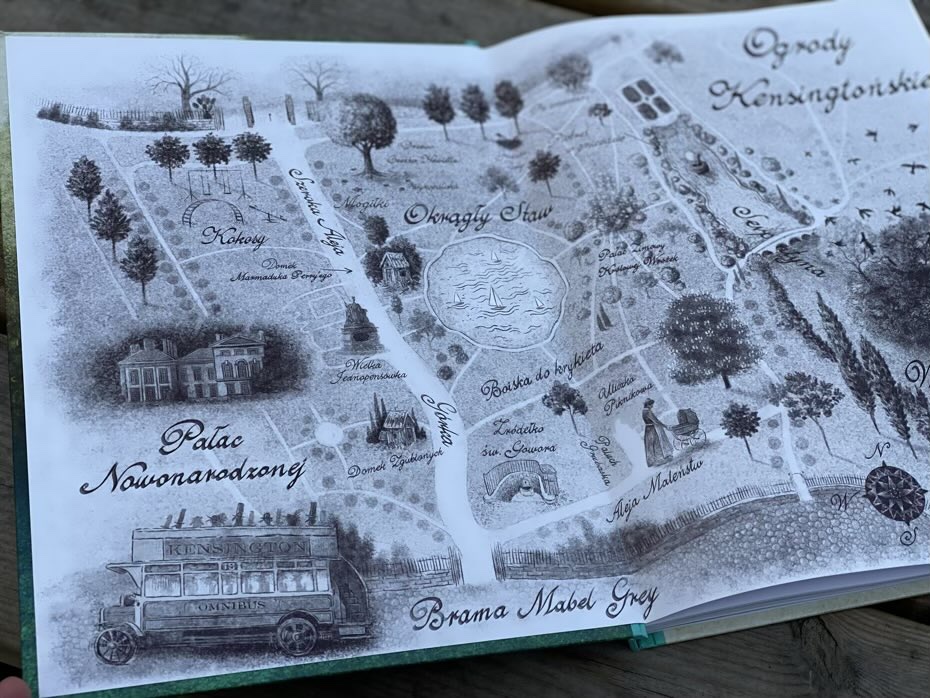 Ogrody
Kensingtońskie
Szeroka Aleja
Mogiłki
Okrągły Staw
Kokosy
Domek
Marmaduka Perry'ego
Pałac zimowy
Królowej Wróżek
Wielka
Boiska do krykieta
Górka
Uliczka
Piknikowa
Pałac
Nowonarodzonej
Domek Zgubionych
Źródełko
św. Gowora
Aleja Maleństw
N
W
S
KENSINGTON
OMNIBUS
Brama Mabel Grey